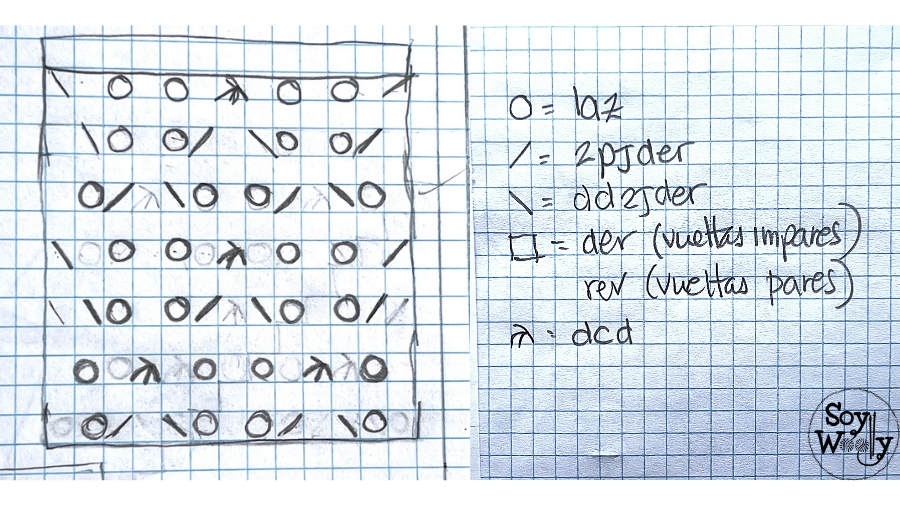 O = laz
/ = 2pjder
\ = dd2jder
□ = der (vueltas impares)
rev (vueltas pares)
⋏ = dcd
Soy
Woolly